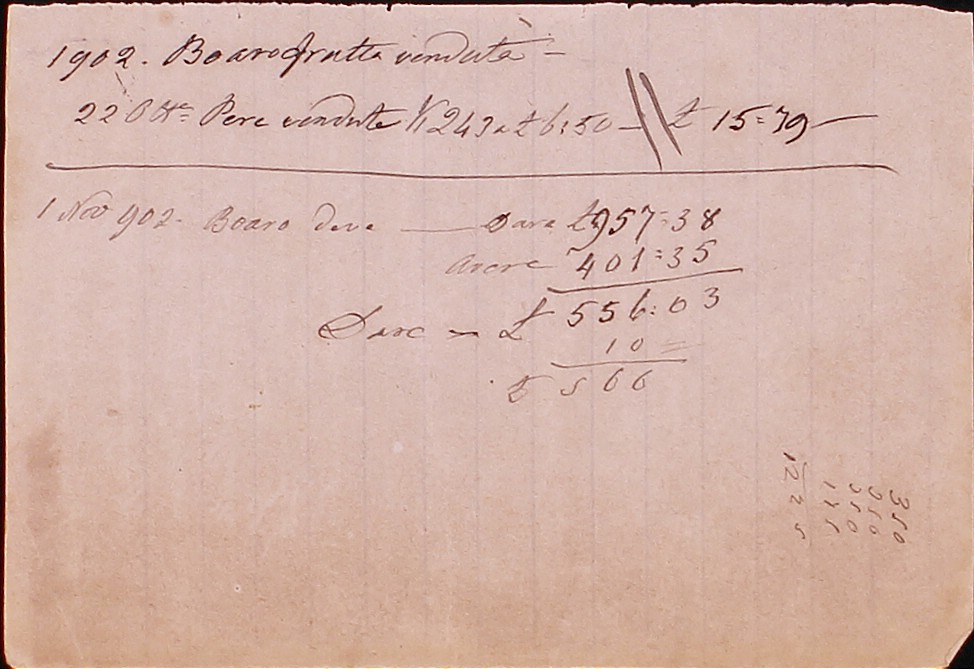 1902. Boaro frutta venduta –
22 8bre Pere vendute K 243 a £ 6:50 — // £ 15=79 —
1 Nov 902. Boaro deve — Dare £ 957=38
Avere 401=35
Dare — £ 556:03
10 =
£ 566
350
350
350
175
1225